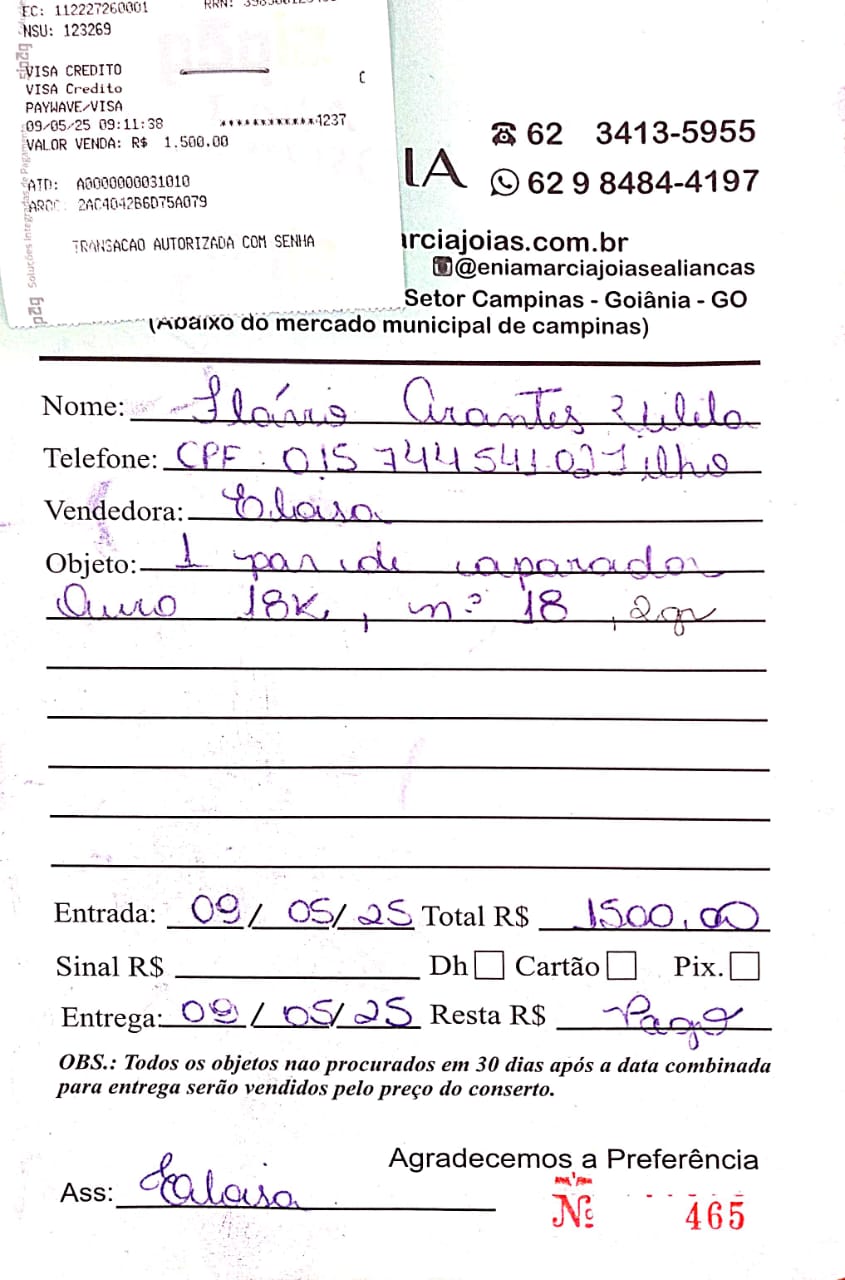 EC: 112227260001
NSU: 123269
VISA CREDITO
C
VISA Credito
PAYWAVE/VISA
09/05/25 09:11:38 ************4237
VALOR VENDA: R$ 1.500,00
ATD: A0000000031010
ARQC: 2AC4042B6D75A079
TRANSACAO AUTORIZADA COM SENHA
Soluções Integradas de Pagamento
IA
62 3413-5955
62 9 8484-4197
rciajoias.com.br
@eniamarciajoiasealiancas
Setor Campinas - Goiânia - GO
(Abaixo do mercado municipal de campinas)
Nome: Flávio Arantes
Telefone: CPF: 015 744 541.02 Filho
Vendedora: Eloisa
Objeto: 1 par de aparador
Ouro 18K, nº 18, 2gr
Entrada: 09/05/25 Total R$ 1500,00
Sinal R$ Dh Cartão Pix.
Entrega: 09/05/25 Resta R$ Pago
OBS.: Todos os objetos nao procurados em 30 dias após a data combinada
para entrega serão vendidos pelo preço do conserto.
Agradecemos a Preferência
Ass: Eloisa
Nº 465